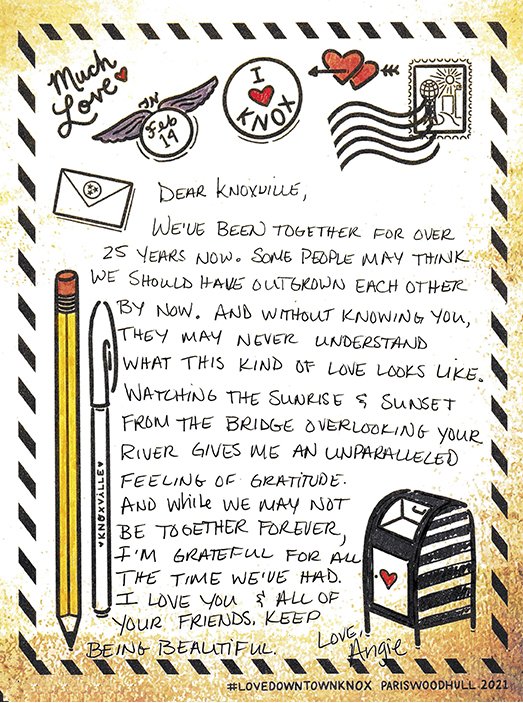 Much
Love
TN
Feb
14
I
KNOX
DEAR KNOXVILLE,
WE'VE BEEN TOGETHER FOR OVER
25 YEARS NOW. SOME PEOPLE MAY THINK
WE SHOULD HAVE OUTGROWN EACH OTHER
BY NOW. AND WITHOUT KNOWING YOU,
THEY MAY NEVER UNDERSTAND
WHAT THIS KIND OF LOVE LOOKS LIKE.
WATCHING THE SUNRISE & SUNSET
FROM THE BRIDGE OVERLOOKING YOUR
RIVER GIVES ME AN UNPARALLELED
FEELING OF GRATITUDE.
AND WHILE WE MAY NOT
BE TOGETHER FOREVER,
I'M GRATEFUL FOR ALL
THE TIME WE'VE HAD.
I LOVE YOU & ALL OF
YOUR FRIENDS. KEEP
BEING BEAUTIFUL.
LOVE,
Angie
♥KNOXVILLE♥
#LOVEDOWNTOWNKNOX PARISWOODHULL.2021